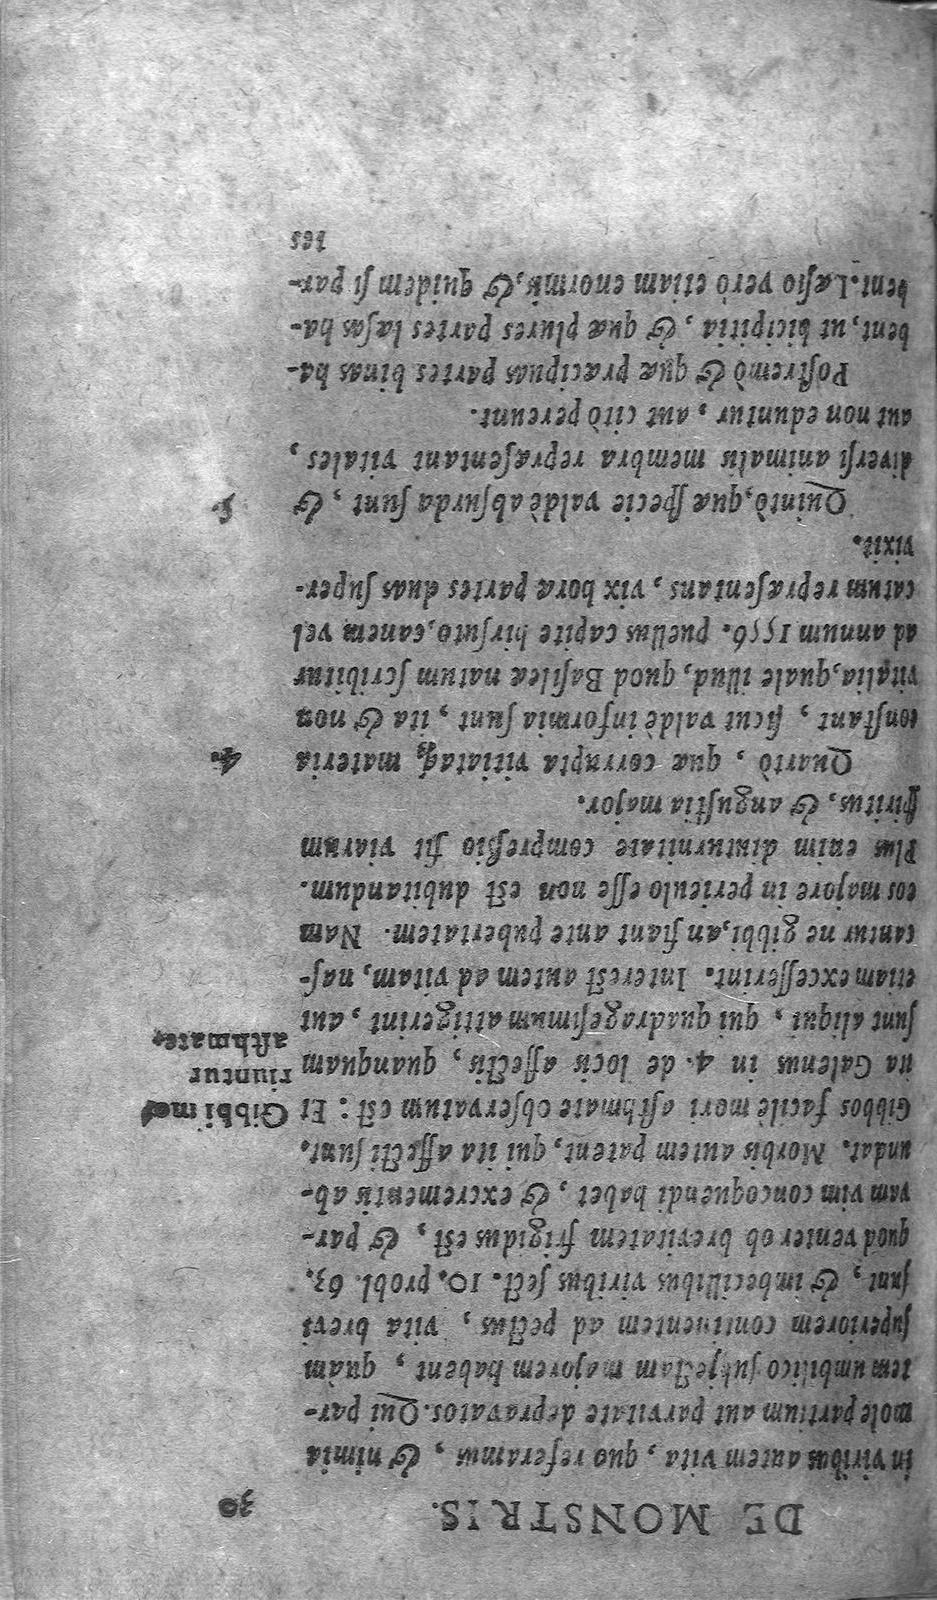 DE MONSTRIS. 30
in viribus autem vita, quo referamus, & nimia
mole partium aut parvitate depravatos. Qui par-
tem umbilico subjectam majorem habent, quàm
superiorem continentem ad pectus, vita brevi
sunt, & imbecillibus viribus sect. 10. probl. 63.
quod venter ob brevitatem frigidus est, & par-
vam vim concoquendi habet, & excrementis ab-
undat. Morbis autem patent, qui ita affecti sunt.
Gibbos facilè mori asthmate observatum est: Et
Gibbi mo-
riuntur
asthmate.
ita Galenus in 4. de locis affectis, quanquam
sunt aliqui, qui quadragesimum attigerint, aut
etiam excesserint. Interest autem ad vitam, nas-
cantur ne gibbi, an fiant ante pubertatem. Nam
eos majore in periculo esse non est dubitandum.
Plus enim diuturnitate compressio fit viarum
spiritus, & angustia major.
Quartò, quæ corrupta vitiataq; materia
4.
constant, sicut valdè informia sunt, ita & non
vitalia, quale illud, quod Basileæ natum scribitur
ad annum 1556. puellus capite hirsuto, canem vel
catum repræsentans, vix horæ partes duas super-
vixit.
Quintò, quæ specie valdè absurda sunt, &
5.
diversi animalis membra repræsentant vitales,
aut non eduntur, aut citò pereunt.
Postremò & quæ præcipuas partes binas ha-
bent, ut bicipitia, & quæ plures partes læsas ha-
bent. Læsio verò etiam enormis, & quidem si par-
tes